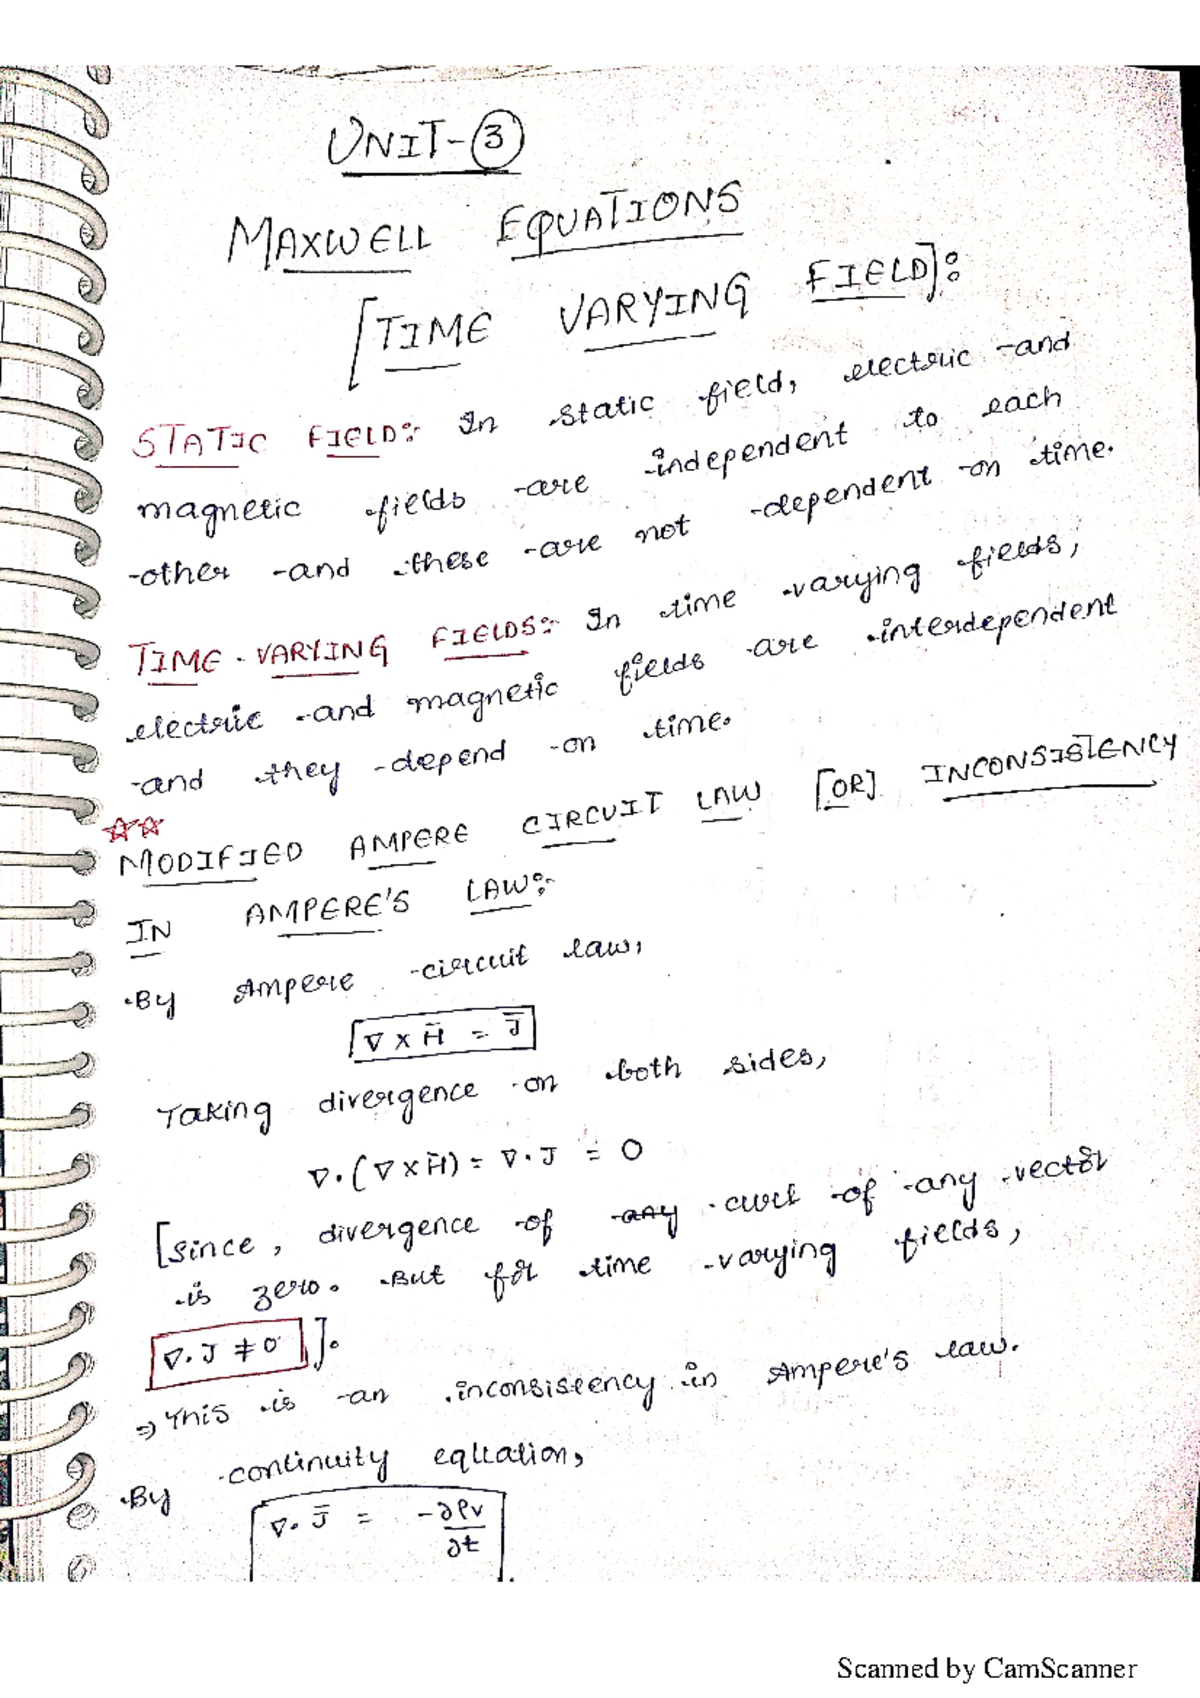 UNIT-③
MAXWELL EQUATIONS
[TIME VARYING FIELD]:
STATIC FIELD:- In static field, electric and
magnetic fields are independent to each
other and these are not dependent on time.
TIME-VARYING FIELDS:- In time varying fields,
electric and magnetic fields are interdependent
and they depend on time.
☆☆
MODIFIED AMPERE CIRCUIT LAW [OR] INCONSISTENCY
IN AMPERE'S LAW:-
By Ampere circuit law,
∇ x H̄ = J̄
Taking divergence on both sides,
∇.(∇ x H̄) = ∇.J = 0
[since, divergence of any curl of any vector
is zero. But for time varying fields,
∇.J ≠ 0].
⇒ This is an inconsistency in Ampere's law.
By continuity equation,
∇. J̄ = -∂ρv/∂t
Scanned by CamScanner